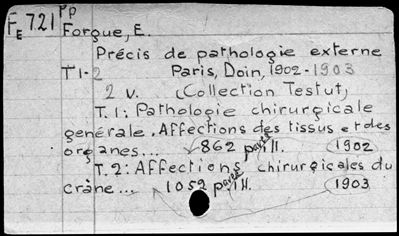 FE 721 PP Forgue, E.
Précis de pathologie externe
T1-2 Paris, Doin, 1902-1903
2 v. (Collection Testut)
T.1: Pathologie chirurgicale
générale. Affections des tissus et des
organes... 862 pages ill. 1902
T.2: Affections chirurgicales du
crâne... 1052 pages ill. 1903